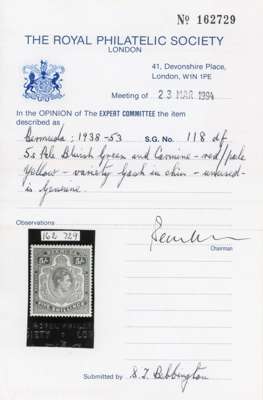 No 162729
THE ROYAL PHILATELIC SOCIETY
LONDON
41, Devonshire Place,
London, W1N 1PE
Meeting of 23 MAR 1994
In the OPINION of The EXPERT COMMITTEE the item
described as
Bermuda; 1938-53 S.G. No. 118 df
5s Pale Bluish Green and Carmine-red/pale
Yellow - variety Gash in chin - unused-
is Genuine.
Observations
162 729
5/- 5/-
FIVE SHILLINGS
ROYAL PHILAT
IETY LO
Chairman
Submitted by S. J. Bebbington